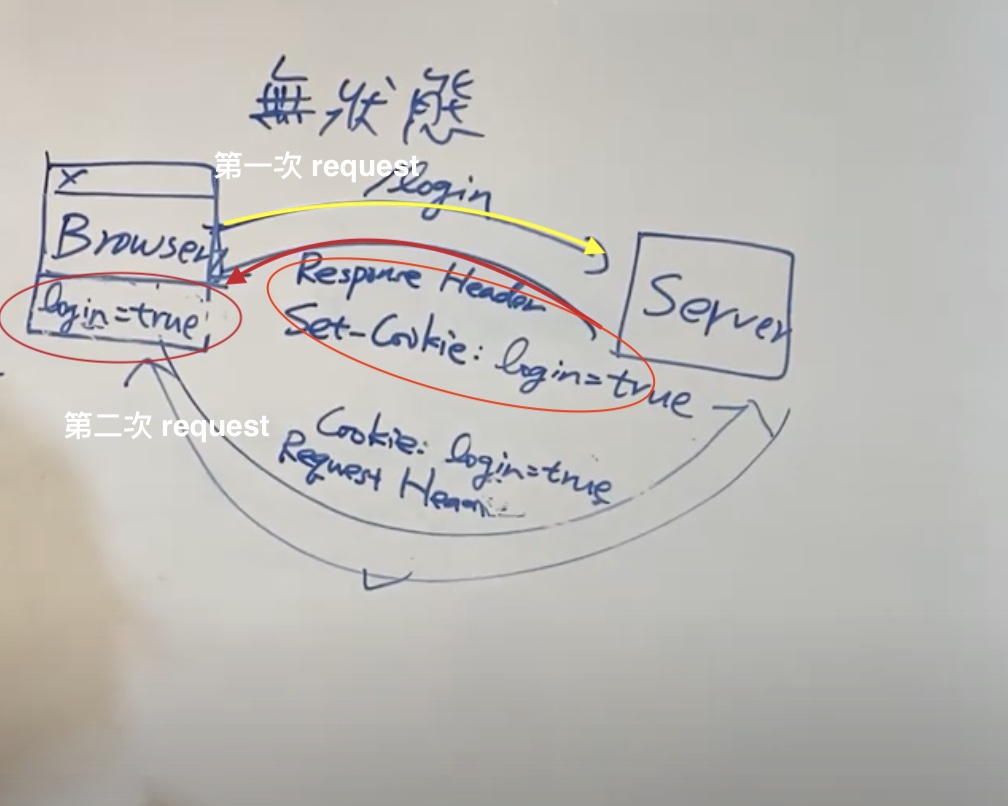 無狀態
第一次 request
/login
X
Browser
login=true
Response Header
Set-Cookie: login=true
Server
第二次 request
Cookie: login=true
Request